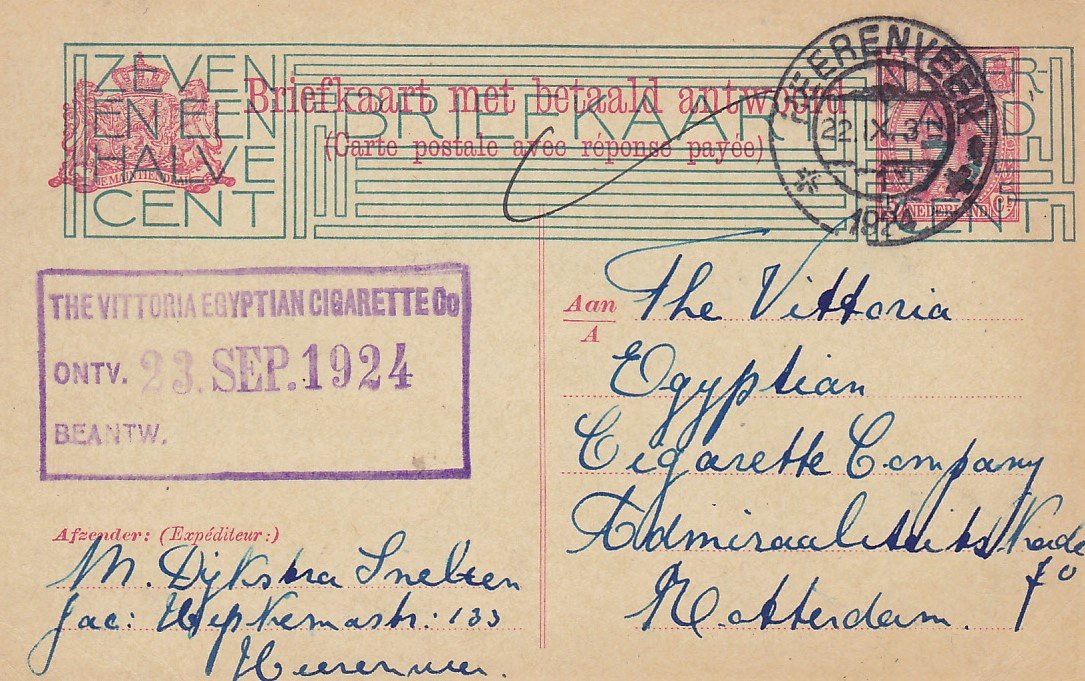 ZEVEN
EN EEN
HALVE
CENT
BRIEFKAART
Briefkaart met betaald antwoord
(Carte postale avec réponse payée)
JE MAINTIENDRAI
HEERENVEEN
22.IX.
1924
NEDERLAND
THE VITTORIA EGYPTIAN CIGARETTE Co
ONTV. 23. SEP. 1924
BEANTW.
Aan
A
The Vittoria
Egyptian
Cigarette Company
Admiraliteits Kade
70
Rotterdam.
Afzender: (Expéditeur:)
M. Dijkstra
Jac: Hepkemastr: 133
Heerenveen.